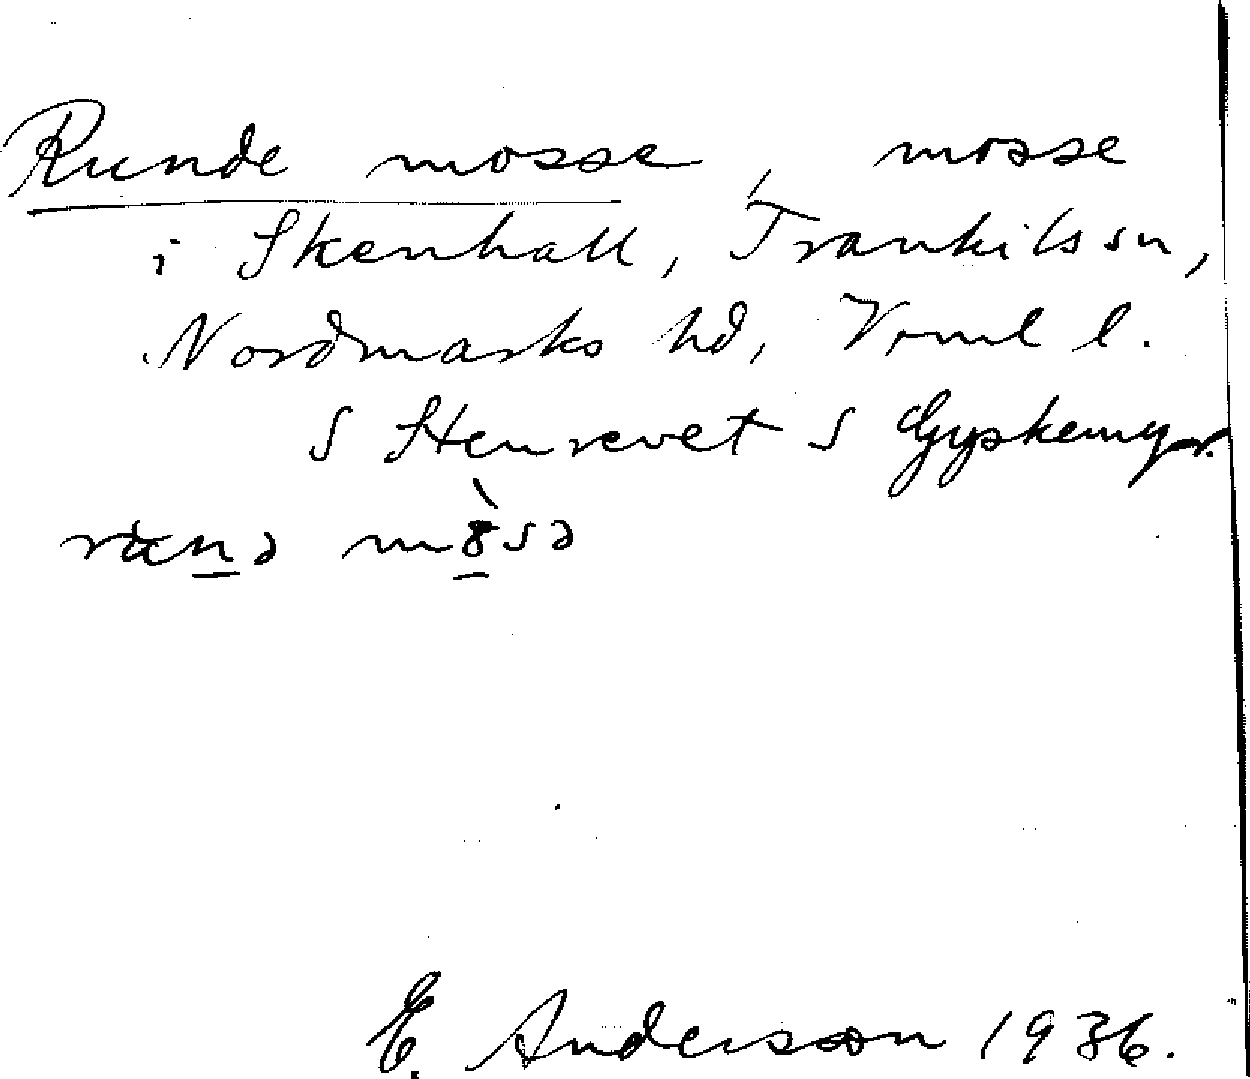 Runde mosse, mosse
i Skenhall, Trankils sn,
Nordmarks hd, Vrml l.
S Stenrevet S Gypskemyr.
E. Anderson 1936.